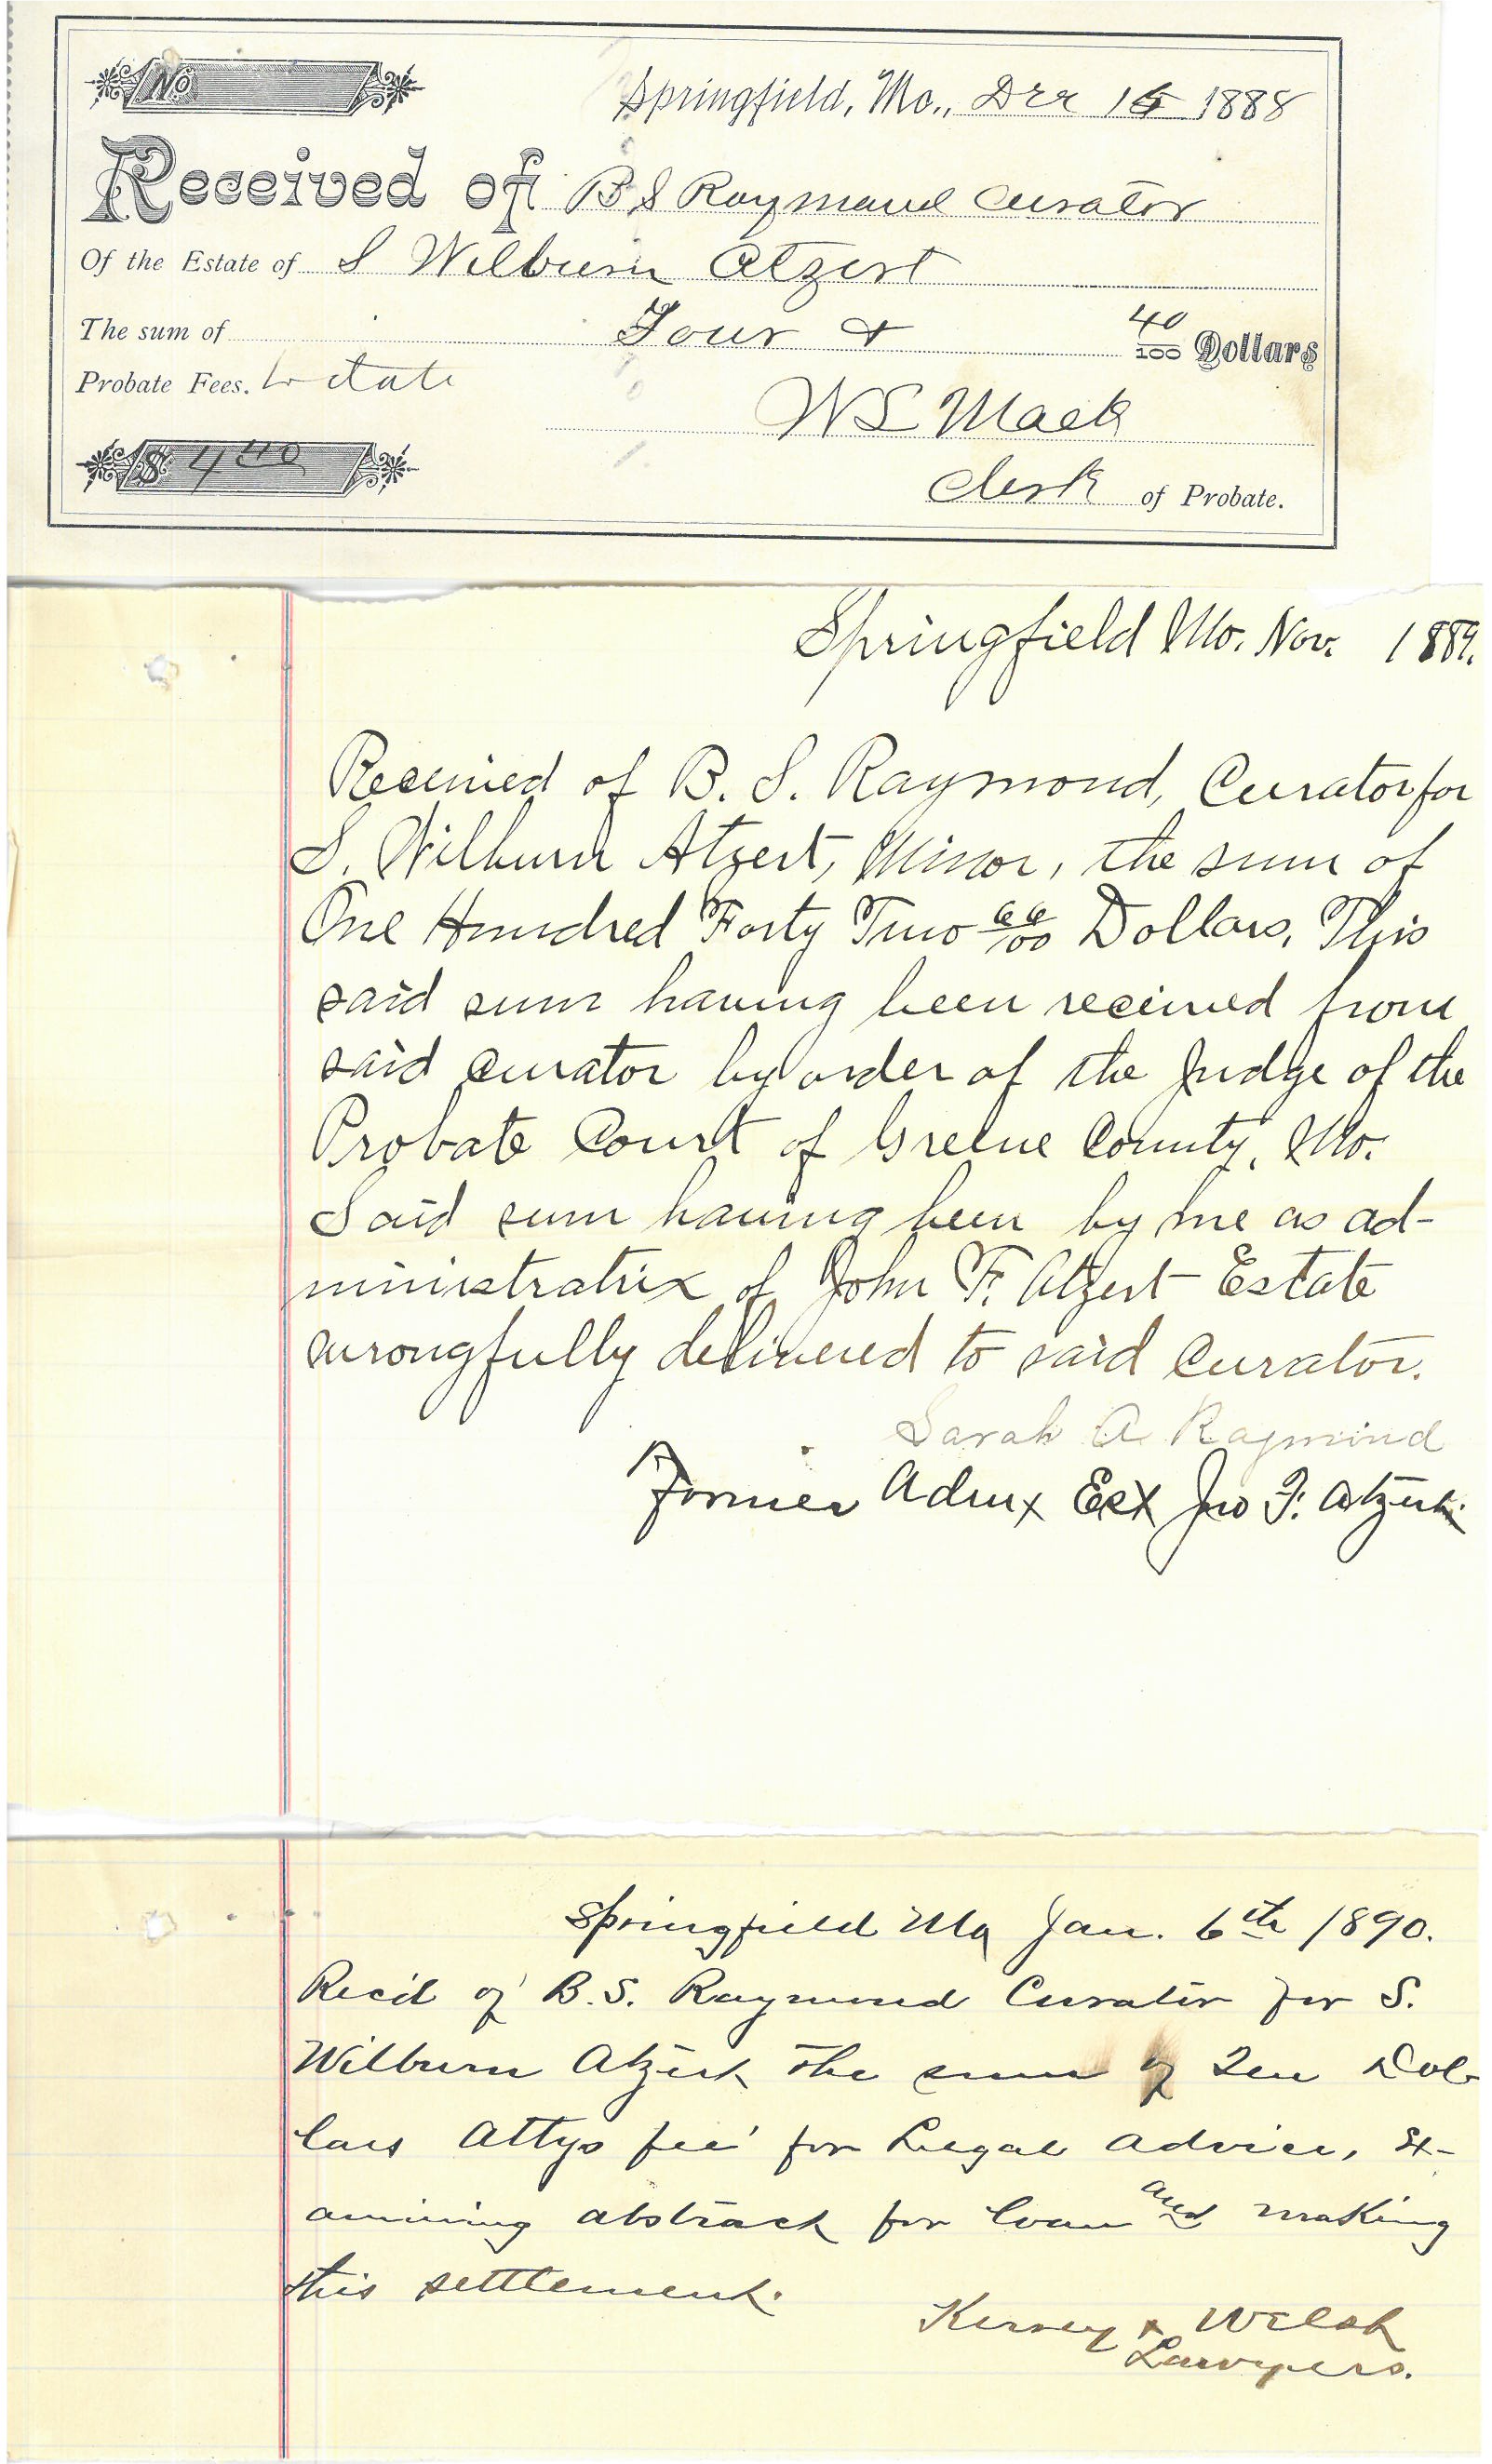 No
Springfield, Mo., Dec 15 1888
Received of B S Raymond Curator
Of the Estate of S Wilburn Atzert
The sum of Four & 40/100 Dollars
Probate Fees. to date
W S Mack
$ 4 40
Clerk of Probate.
Springfield Mo. Nov. 1889.
Received of B. S. Raymond, Curator for
S. Wilburn Atzert, Minor, the sum of
One Hundred Forty Two 66/100 Dollars, This
said sum having been received from
said curator by order of the Judge of the
Probate Court of Greene County, Mo.
Said sum having been by me as ad-
ministratrix of John F. Atzert Estate
wrongfully delivered to said curator.
Sarah A Raymond
Former Admx Est Jno F. Atzert.
Springfield Mo Jan. 6th 1890.
Rec'd of B.S. Raymond Curator for S.
Wilburn Atzert the sum of Ten Dol-
lars Attys fee for Legal advice, Ex-
amining abstract for loan and making
this settlement.
Kersey & Welsh
Lawyers.